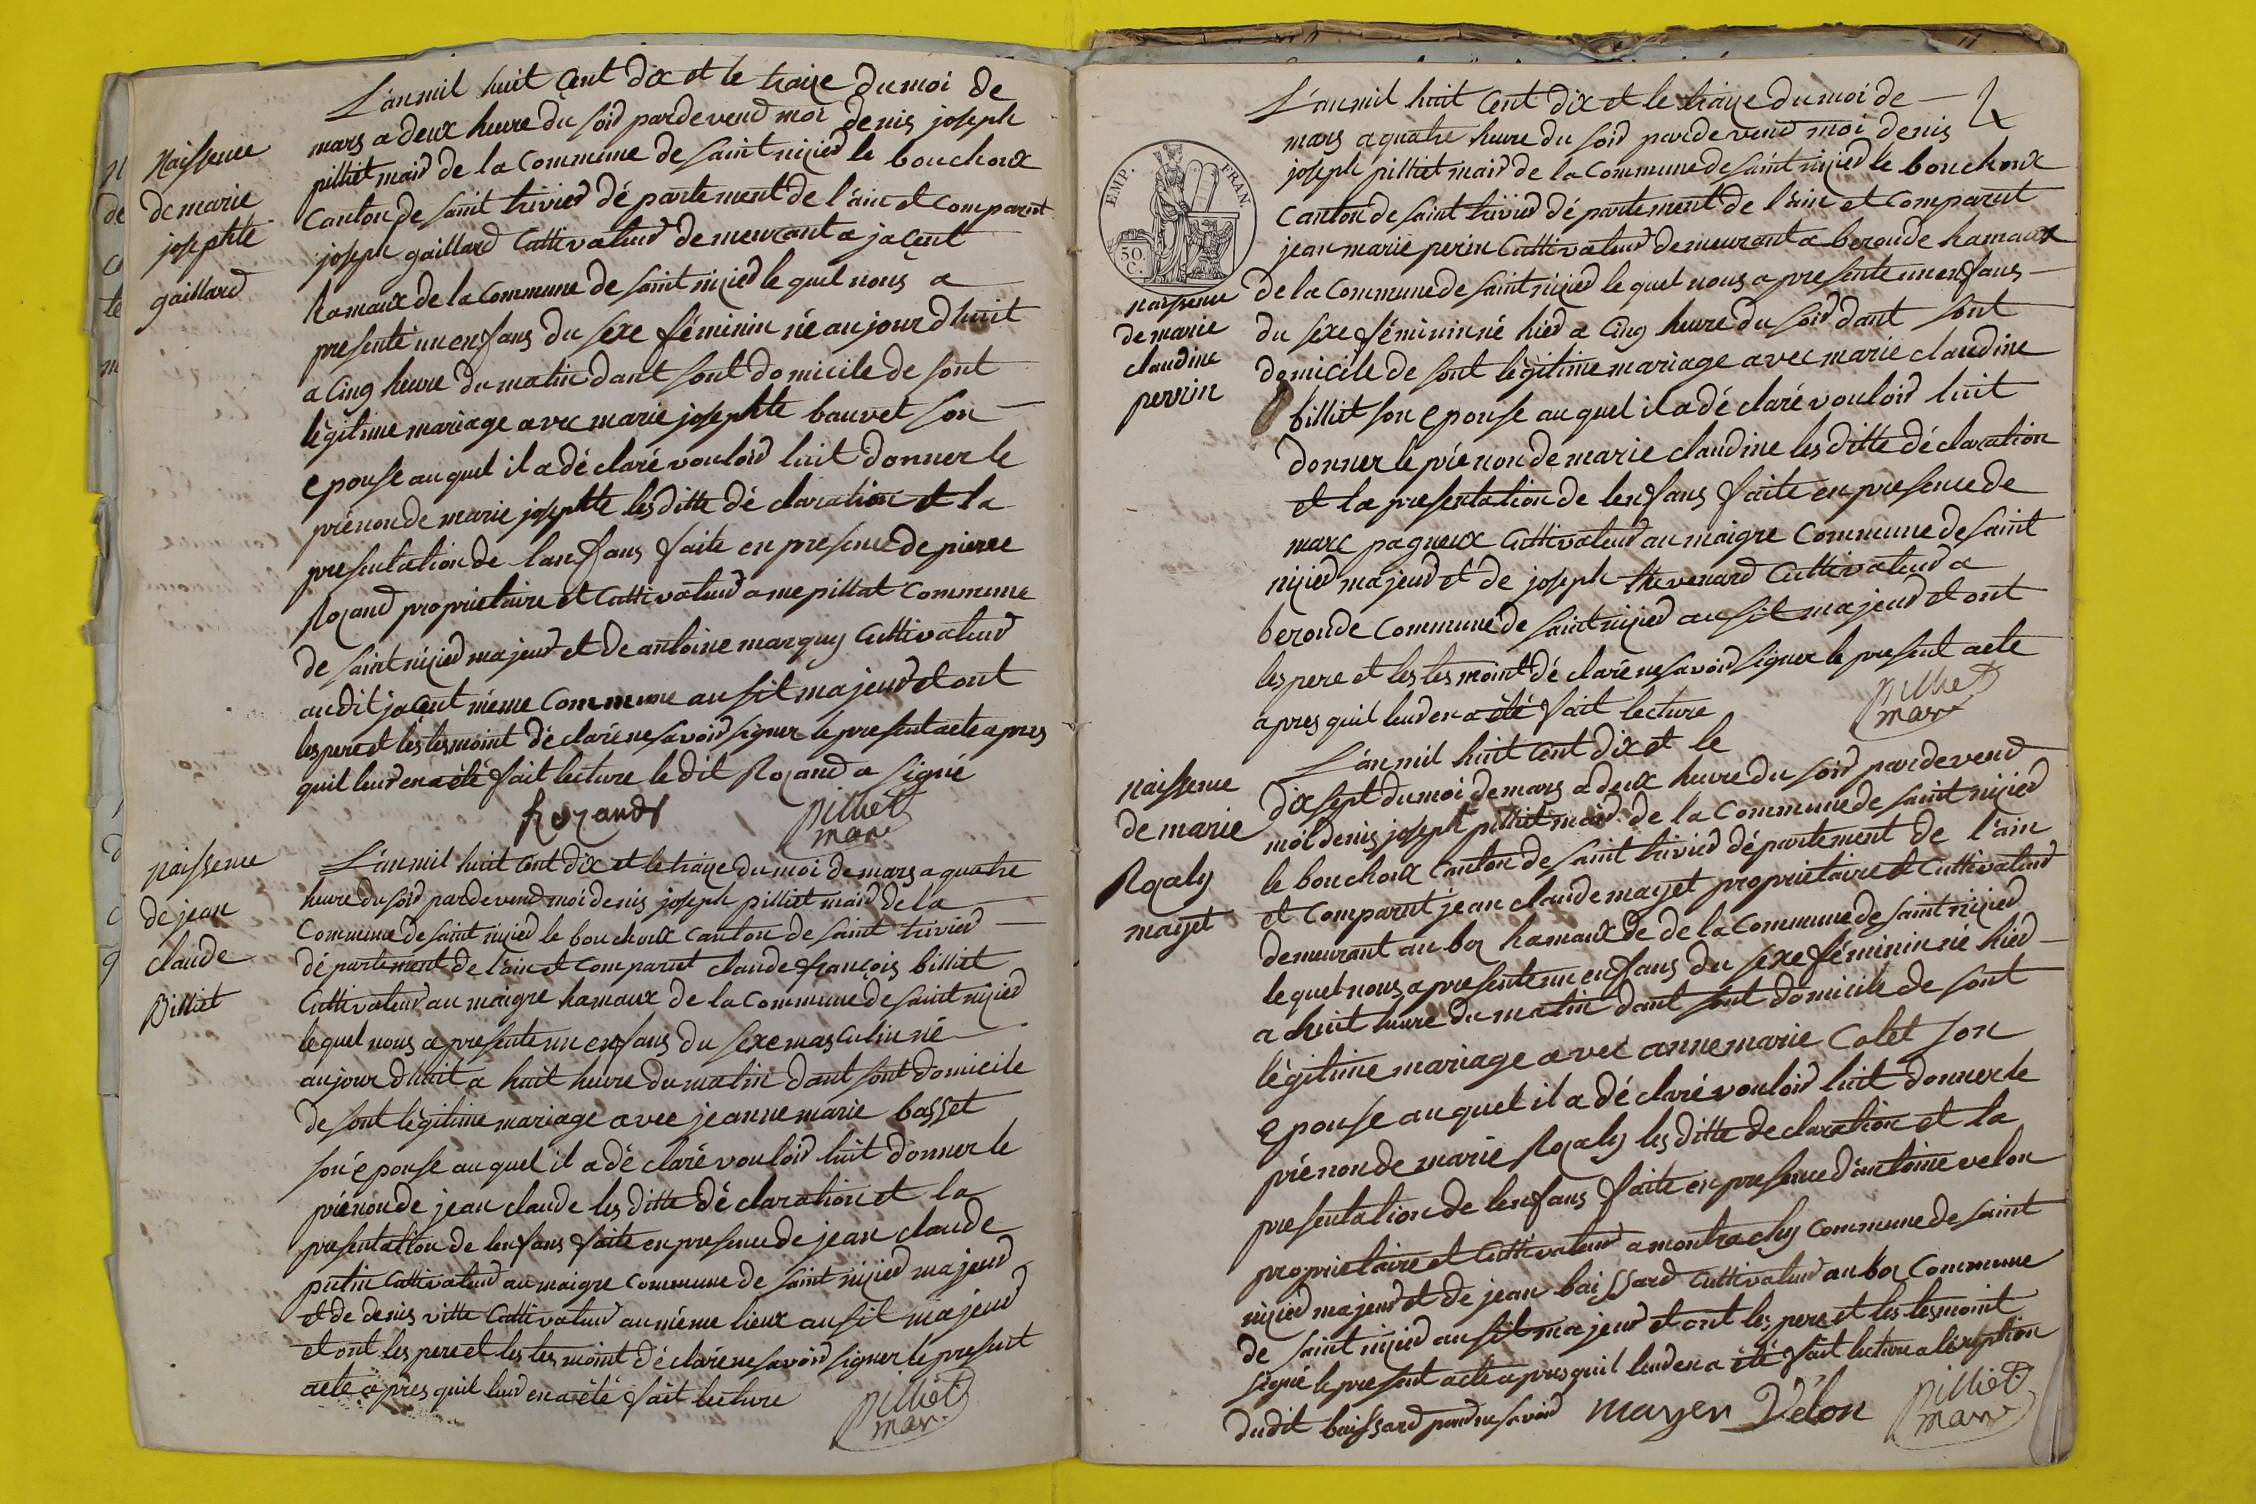 L'an mil huit Cent dix et le traize du moi de
mars a deux heure du soir pardevend moi denis joseph
pilliet mair de la Commune de saint nizier le bouchoux
Canton de saint trivier département de l'ain et comparut
joseph gaillard Cultivateur demeurant a jacent
hamaux de la Commune de saint nizier le quel nous a
presenté un enfans du sexe féminin né aujourdhuit
a Cinq heure du matin dant sont domicile de sont
légitime mariage avec marie josephte bauvet son
epouse au quel il a déclaré vouloir luit donner le
prénon de marie josephte les ditte déclaration et la
presentation de lanfans faite en presence de pierre
Rozand proprietaire et Cultivateur a mepillat Commune
de saint nizier majeur et de antoine marguy Cultivateur
audit jacent même Commune ausit majeur et ont
les pere et les tesmoint déclaré ne savoir signer le present acte apres
quil leur en a été fait lecture le dit Rozand a signé
Rozandt
pilliet
mair
Naissence
de marie
josephte
gaillard
L'an mil huit Cent dix et le traize du moi de mars a quatre
heure du soir pardevend moi denis joseph pilliet mair de la
Commune de saint nizier le bouchoux canton de saint trivier
département de l'ain et comparut claude françois billiet
Cultivateur au maigre hamaux de la Commune de saint nizier
le quel nous a presente un enfans du sexe masculin né
aujourdhuit a huit heure du matin dant sont domicile
de sont légitime mariage avec jeanne marie basset
son epouse au quel il a déclaré vouloir luit donner le
prénon de jean claude les ditte déclaration et la
presentation de lenfans faite en presence de jean claude
putin Cultivateur au maigre commune de saint nizier majeur
et de denis vitte Cultivateur au même lieux ausit majeur
et ont les pere et les tesmoint déclaré ne savoir signer le present
acte apres quil leur en a été fait lecture
pilliet
mair
naissence
de jean
claude
Billiet
4
L'an mil huit Cent dix et le traize du moi de
mars a quatre heure du soir pardevend moi denis
joseph pilliet mair de la Commune de saint nizier le bouchoux
Canton de saint trivier département de l'ain et Comparut
jean marie perin Cultivateur demeurant a beronde hamaux
de la Commune de saint nizier le quel nous a presente un enfans
du sexe féminin né hier a Cinq heure du soir dant sont
domicile de sont légitime mariage avec marie claudine
billiet son epouse au quel il a déclaré vouloir luit
donner le prénon de marie claudine les ditte déclaration
et la presentation de lenfans faite en presence de
marc pagneux Cultivateur au maigre Commune de saint
nizier majeur et de joseph thevenard Cultivateur a
beronde Commune de saint nizier ausit majeur et ont
les pere et les tesmoint déclaré ne savoir signer le present acte
apres quil leur en a été fait lecture
pilliet
mair
EMP. FRAN.
50.
C.
naissence
de marie
claudine
perrin
L'an mil huit cent dix et le
dix sept du moi de mars a deux heure du soir pardevend
moi denis joseph pilliet mair de la Commune de saint nizier
le bouchoux Canton de saint trivier département de l'ain
et Comparut jean claude mayet proprietaire et Cultivateur
demeurant au boz hamaux de de la Commune de saint nizier
le quel nous a presente un enfans du sexe féminin né hier
a huit heure du matin dant sont domicile de sont
légitime mariage avec anne marie Colet son
epouse au quel il a déclaré vouloir luit donner le
prénon de marie Rozaly les ditte declaration et la
presentation de lenfans faite en presence d'antoine velon
proprietaire et Cultivateur a montrachy commune de saint
nizier majeur et de jean baissard Cultivateur au boz Commune
de saint nizier ausit majeur et ont les pere et les tesmoint
signé le present acte apres quil leur en a été fait lecture a léxeption
dudit baissard pour ne savoir mayen Velon
pilliet
mair
naissence
de marie
Rozaly
mayet